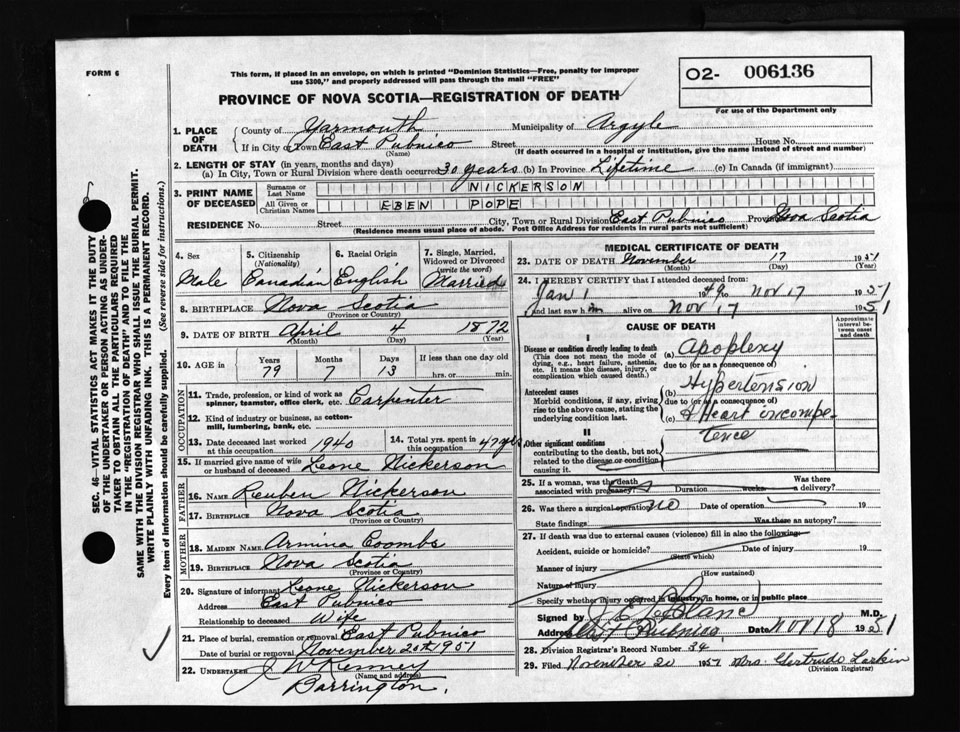 FORM 6
This form, if placed in an envelope, on which is printed "Dominion Statistics—Free, penalty for improper
use $300," and properly addressed will pass through the mail "FREE"
O2- 006136
For use of the Department only
PROVINCE OF NOVA SCOTIA—REGISTRATION OF DEATH
1. PLACE OF DEATH
County of Yarmouth Municipality of Argyle
If in City or Town East Pubnico Street House No.
(Name) (If death occurred in a hospital or institution, give the name instead of street and number)
2. LENGTH OF STAY (in years, months and days)
(a) In City, Town or Rural Division where death occurred 30 years (b) In Province Lifetime (c) In Canada (if immigrant)
3. PRINT NAME OF DECEASED
Surname or Last Name NICKERSON
All Given or Christian Names EBEN POPE
RESIDENCE No. Street City, Town or Rural Division East Pubnico Province Nova Scotia
(Residence means usual place of abode. Post Office Address for residents in rural parts not sufficient)
4. Sex
Male
5. Citizenship
(Nationality)
Canadian
6. Racial Origin
English
7. Single, Married,
Widowed or Divorced
(write the word)
Married
8. BIRTHPLACE Nova Scotia
(Province or Country)
9. DATE OF BIRTH April 4 1872
(Month) (Day) (Year)
10. AGE in
Years Months Days If less than one day old
79 7 13 hrs. or min.
OCCUPATION
11. Trade, profession, or kind of work as
spinner, teamster, office clerk, etc. Carpenter
12. Kind of industry or business, as cotten-
mill, lumbering, bank, etc.
13. Date deceased last worked
at this occupation 1940
14. Total yrs. spent in
this occupation 47 yrs
15. If married give name of wife
or husband of deceased Leone Nickerson
FATHER
16. NAME Reuben Nickerson
17. BIRTHPLACE Nova Scotia
(Province or Country)
MOTHER
18. MAIDEN NAME Armina Coombs
19. BIRTHPLACE Nova Scotia
(Province or Country)
20. Signature of informant Leone Nickerson
Address East Pubnico
Relationship to deceased Wife
21. Place of burial, cremation or removal East Pubnico
Date of burial or removal November 20th 1951
22. UNDERTAKER J W Kenney
(Name and address)
Barrington.
MEDICAL CERTIFICATE OF DEATH
23. DATE OF DEATH November 17 1951
(Month) (Day) (Year)
24. I HEREBY CERTIFY that I attended deceased from:
Jan 1 1949 to Nov 17 1951
and last saw him alive on Nov 17 1951
CAUSE OF DEATH
Approximate
interval be-
tween onset
and death
I
Disease or condition directly leading to death
(This does not mean the mode of
dying, e.g., heart failure, asthenia,
etc. It means the disease, injury, or
complication which caused death.)
(a) Apoplexy
due to (or as a consequence of)
Antecedent causes
Morbid conditions, if any, giving
rise to the above cause, stating the
underlying condition last.
(b) Hypertension
due to (or as a consequence of)
(c) & Heart incompe
tence
II
Other significant conditions
contributing to the death, but not
related to the disease or condition
causing it.
25. If a woman, was the death
associated with pregnancy? Duration weeks
Was there
a delivery?
26. Was there a surgical operation no Date of operation 19
State findings Was there an autopsy?
27. If death was due to external causes (violence) fill in also the following:
Accident, suicide or homicide? Date of injury 19
(State which)
Manner of injury
(How sustained)
Nature of injury
Specify whether injury occurred in industry, in home, or in public place
Signed by J. E. LeBlanc M.D.
Address West Pubnico Date Nov 18 1951
28. Division Registrar's Record Number 34
29. Filed November 20 1951 Mrs. Gertrude Larkin
(Division Registrar)
SEC. 46—VITAL STATISTICS ACT MAKES IT THE DUTY
OF THE UNDERTAKER OR PERSON ACTING AS UNDER-
TAKER TO OBTAIN ALL THE PARTICULARS REQUIRED
IN THE "REGISTRATION OF DEATH" AND TO FILE THE
SAME WITH THE DIVISION REGISTRAR WHO SHALL ISSUE THE BURIAL PERMIT.
WRITE PLAINLY WITH UNFADING INK. THIS IS A PERMANENT RECORD.
Every item of information should be carefully supplied. (See reverse side for instructions.)